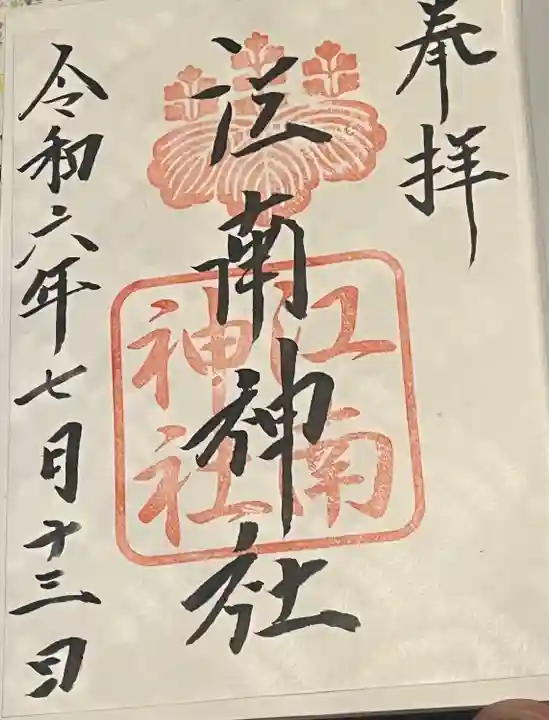 奉拝
江南神社
江南
神社
令和六年七月十三日